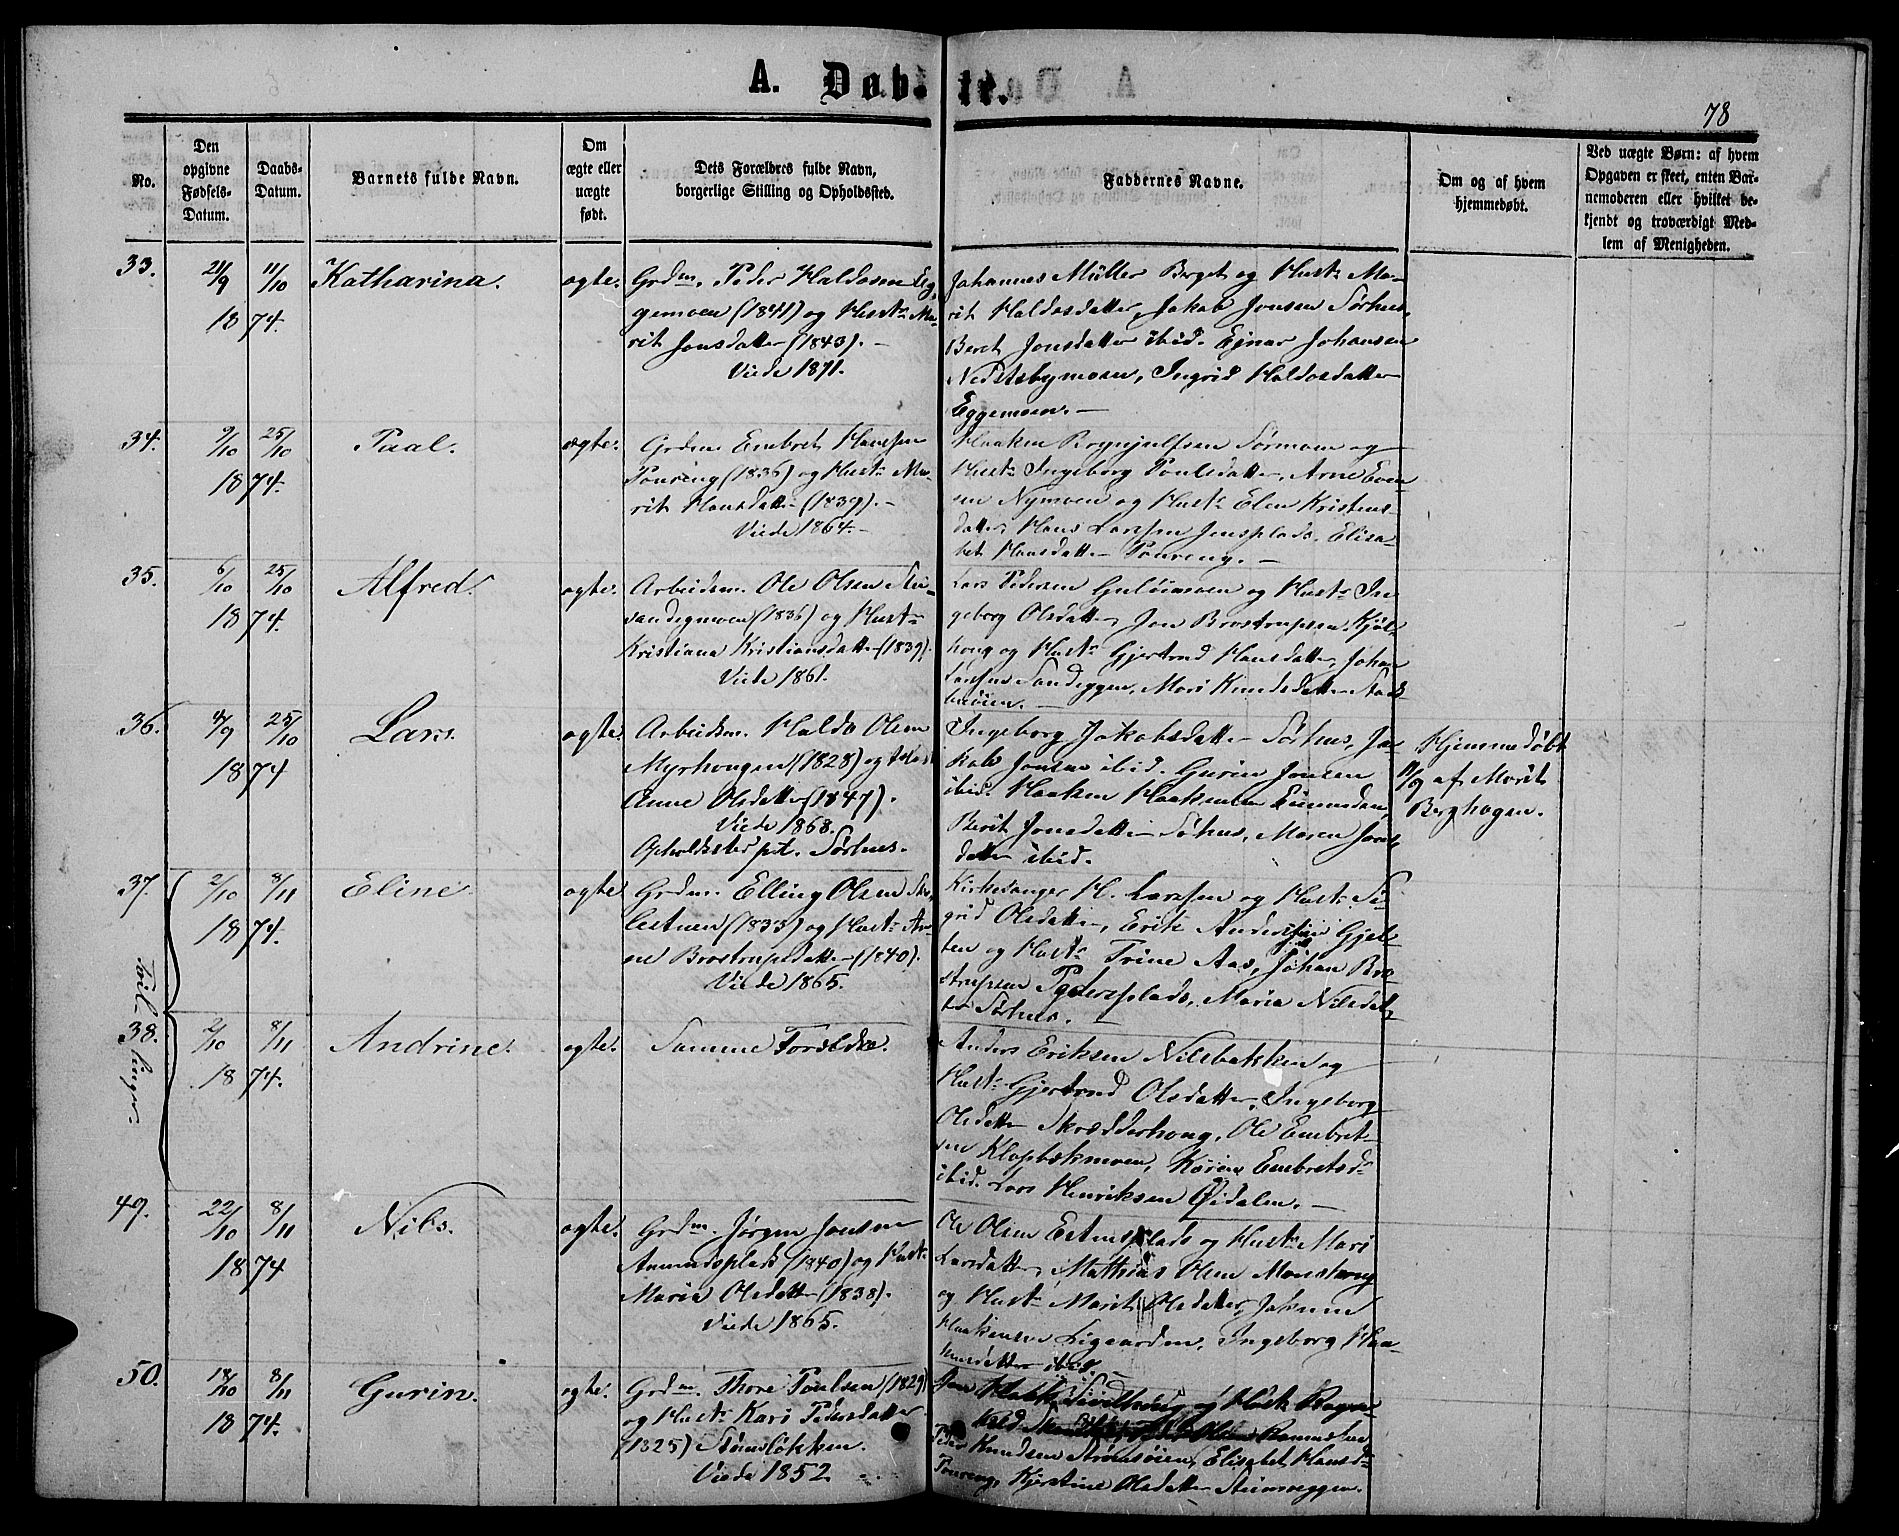 A. Døbte.
78
No.
Den opgivne Fødsels-Datum.
Daabs-Datum.
Barnets fulde Navn.
Om ægte eller uægte født.
Dets Forældres fulde Navn, borgerlige Stilling og Opholdssted.
Faddernes Navne.
Om og af hvem hjemmedøbt.
Ved uægte Børn: af hvem Opgaven er skeet, enten Barnemoderen eller hvilket bekjendt og troværdigt Medlem af Menigheden.
33. 21/9 11/10 1874. Katharina. ægte.
Grdm. Peder Haldosen Eg-
gemoen (1841) og Hust. Ma-
rit Jonsdatter (1843).-
Viede 1871.
Johannes Müller Berget og Hust. Ma-
rit Haldosdatter, Jakob Jonsen Sørhus,
Beret Jonsdatter ibid. Ejnar Johansen
Nedstebymoen, Ingrid Haldosdatter
Eggemoen.-
34. 9/10 25/10 1874. Paal. ægte.
Grdm. Embret Hansen
Poureng (1836) og Hust. Ma-
rit Hansdatter (1839).-
Viede 1864.-
Haaken Brynjulfsen Sørmoen og
Hust. Ingeborg Poulsdatter, Arne Even-
sen Nymoen og Hust. Elen Kristens-
datter, Hans Larsen Jensplads, Elisa-
bet Hansdatter Poureng.-
35. 6/10 25/10 1874. Alfred. ægte.
Arbeidsm. Ole Olsen
(1836) og Hust.
Kristiana Kristiansdatter (1839).
Viede 1861.
Lars Pedersen og Hust. In-
geborg Olsdatter, Jon Brostrupsen Kjøl-
houg og Hust. Gjertrud Hansdatter, Johan
Larsen Sandeggen, Mari Knudsdatter
36. 4/9 25/10 1874 Lars. ægte.
Arbeidsm. Haldo Olsen
Myrhougen (1828) og Hust.
Anne Olsdatter (1847).
Viede 1868.
Opholdssted pt. Sørhus.
Ingeborg Jakobsdatter Sørhus, Ja-
kob Jonsen ibid. Gurine Jonsen
ibid. Haaken Haakensen
Berit Jonsdatter Sørhus, Maren Jons-
datter ibid.
Hjemmedøbt
11/9 af Marit
Berghagen.
37. 2/10 8/11 1874. Eline. ægte
Grdm. Elling Olsen
(1833) og Hust. An-
ne Brostrupsdatter (1840).
Viede 1865.
Kirkesanger H. Larsen og Hust. Si-
grid Olsdatter, Erik Andersen Gjel-
ten og Hust. Trine Aas, Johan Bro-
strupsen Pedersplads, Maria Nilsdat-
ter Sørhus.-
Tvillinger
38. 2/10 8/11 1874. Andrine. ægte.
Samme Forældre.
Anders Eriksen Nilsbakken og
Hust. Gjertrud Olsdatter, Ingeborg
Olsdatter Skrædderhoug, Ole Embret-
sen Klopbækmoen, Karen Embretsd.
ibid. Lars Henriksen Øidalen.-
49. 22/10 8/11 1874 Nils. ægte.
Grdm. Jørgen Jonsen
Aamundsplads (1840) og Hust.
Maria Olsdatter (1838).
Viede 1865.
Ole Olsen Estensplads og Hust. Mari
Larsdatter, Mathias Olsen Monshoug
og Hust. Marit Olsdatter,
Haakensen Ligaarden, Ingeborg Haa-
kensdatter ibid.-
50. 18/10 8/11 1874. Gurin. ægte.
Grdm. Thore Poulsen (1829)
og Hust. Kari Pedersdatter
(1825) Støinsløkken.
Viede 1852.
Jon og Hust. Ragn-
hild Olsen
Peder Knudsen Strømsøien, Elisabet Hansd.
Poureng, Kjerstine Olsdatter